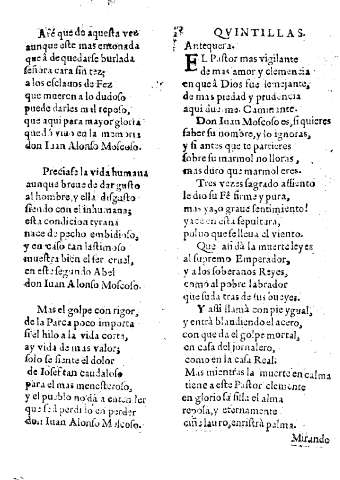 Afé que de aquesta vez
aunque este mas entonada
que à de quedarse burlada
señora cara sin tez;
a los esclauos de Fez
que mueren a lo dudoso
puedo darles mi reposo,
que aqui para mayor gloria
quedò viuo en la memoria
don Iuan Alonso Moscoso.
Preciase la vida humana
aunque breue de dar gusto
al hombre, y ella disgusto
siendo con el inhumana;
esta condicion tyrana
nace de pecho embidioso,
y en caso tan lastimoso
muestra bien el ser cruel,
en este segundo Abel
don Iuan Alonso Moscoso.
Mas el golpe con rigor,
de la Parca poco importa
si el hilo a la vida corta,
ay vida de mas valor;
solo se siente el dolor
de Iosef tan caudaloso
para el mas menesteroso,
y el pueblo no dà a entender
que serà perdido en perder
don Iuan Alonso Moscoso.
QVINTILLAS.
Antequera.
EL Pastor mas vigilante
de mas amor y clemencia
en que à Dios fue semejante,
de mas piedad y prudencia
aqui due me. Caminante.
Don Iuan Moscoso es, si quieres
saber su nombre, y lo ignoras,
y si antes que te partieres
sobre su marmol no lloras,
mas duro que marmol eres.
Tres vezes sagrado assiento
le dio su Fè firme y pura,
mas ya, o graue sentimiento!
yace en esta sepultura,
poluo que se lleua el viento.
Que assi dà la muerte leyes
al supremo Emperador,
y a los soberanos Reyes,
como al pobre labrador
que suda tras de sus bueyes.
Y assi llama con pie ygual,
y entra blandiendo el acero,
con que da el golpe mortal,
en casa del jornalero,
como en la casa Real.
Mas mientras la muerte en calma
tiene a este Pastor clemente
en gloria sa silla el alma
reposa, y eternamente
ciñe lauro, enristra palma.
Mirando